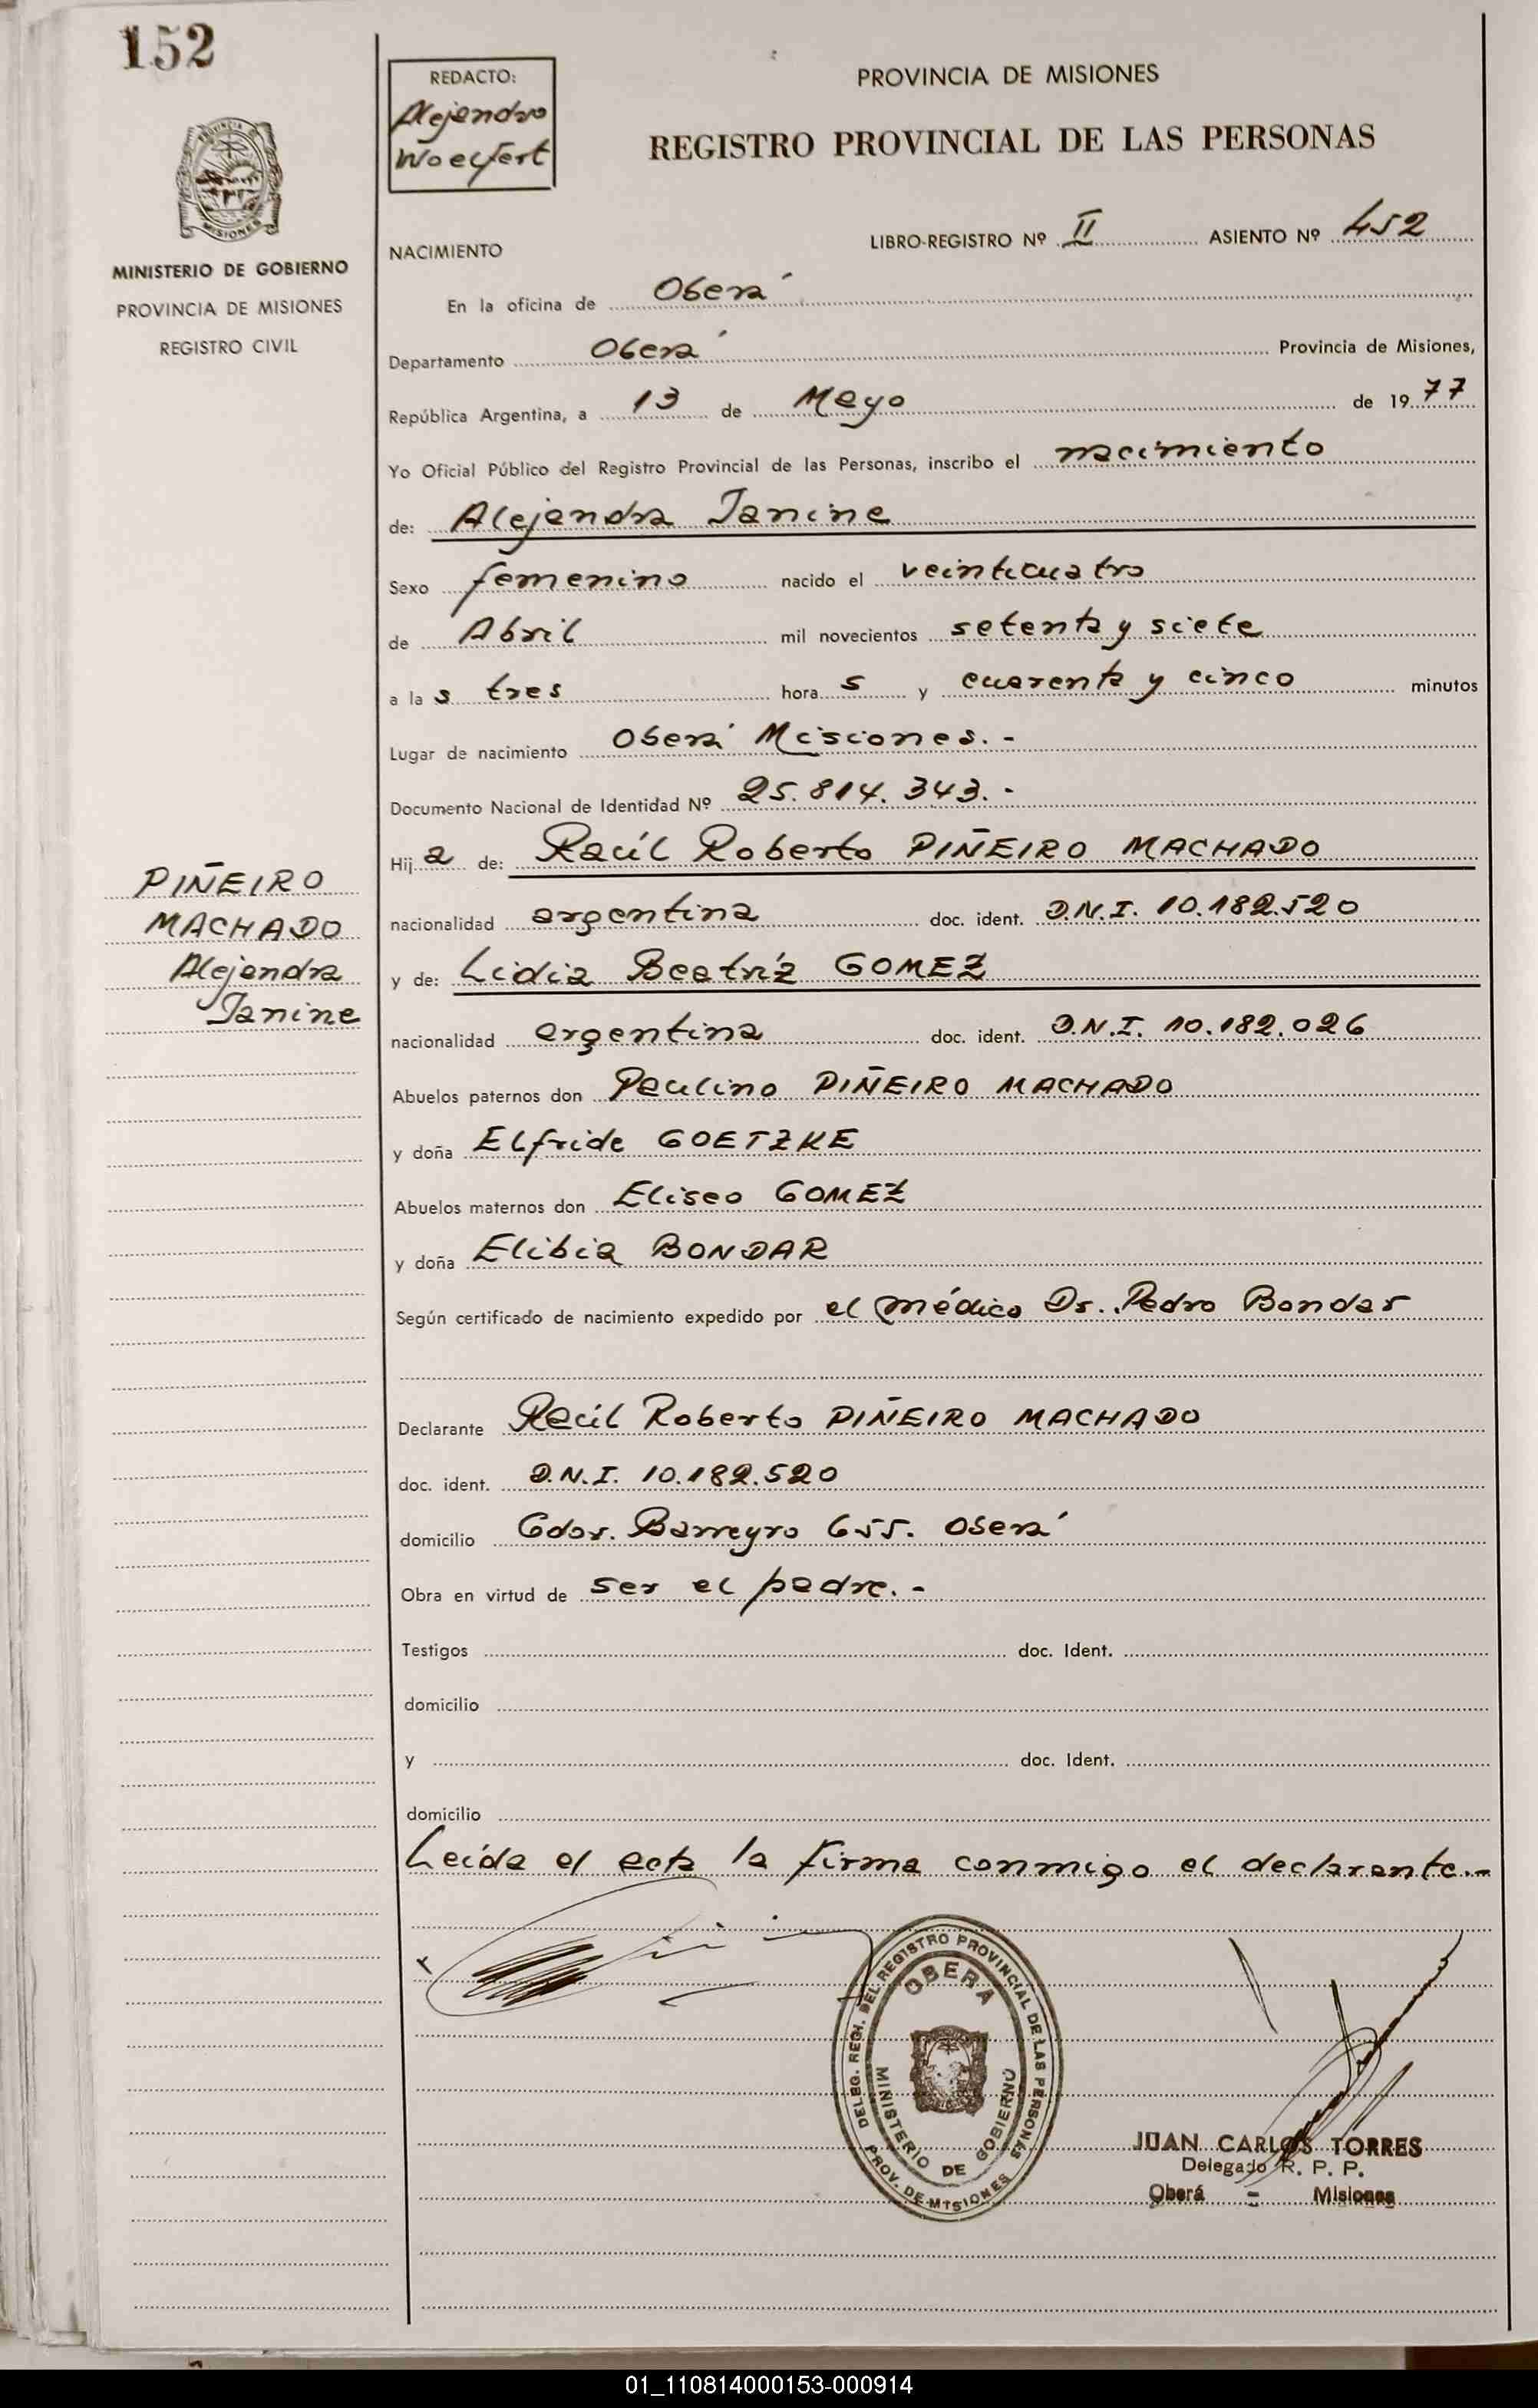 152
REDACTO:
Alejandro
Woelfert
PROVINCIA DE MISIONES
REGISTRO PROVINCIAL DE LAS PERSONAS
MINISTERIO DE GOBIERNO
PROVINCIA DE MISIONES
REGISTRO CIVIL
NACIMIENTO LIBRO-REGISTRO Nº II ASIENTO Nº 452
En la oficina de Oberá
Departamento Oberá Provincia de Misiones,
República Argentina, a 13 de Mayo de 1977
Yo Oficial Público del Registro Provincial de las Personas, inscribo el nacimiento
de: Alejandra Janine
Sexo femenino nacido el veinticuatro
de Abril mil novecientos setenta y siete
a la s tres hora s y cuarenta y cinco minutos
Lugar de nacimiento Oberá Misiones.-
Documento Nacional de Identidad Nº 25.814.343.-
Hij a de: Raúl Roberto PIÑEIRO MACHADO
nacionalidad argentina doc. ident. D.N.I. 10.182.520
y de: Lidia Beatríz GOMEZ
nacionalidad argentina doc. ident. D.N.I. 10.182.026
Abuelos paternos don Paulino PIÑEIRO MACHADO
y doña Elfride GOETZKE
Abuelos maternos don Eliseo GOMEZ
y doña Elibia BONDAR
Según certificado de nacimiento expedido por el médico Dr. Pedro Bondar
Declarante Raúl Roberto PIÑEIRO MACHADO
doc. ident. D.N.I. 10.182.520
domicilio Gdor. Barreyro 655. Oberá
Obra en virtud de ser el padre.-
Testigos doc. Ident.
domicilio
y doc. Ident.
domicilio
Leída el acta la firma conmigo el declarante.-
PIÑEIRO
MACHADO
Alejandra
Janine
DELEG. REGI. DEL REGISTRO PROVINCIAL DE LAS PERSONAS
OBERA
MINISTERIO DE GOBIERNO
PROV. DE MISIONES
JUAN CARLOS TORRES
Delegado R. P. P.
Oberá - Misiones
01_110814000153-000914